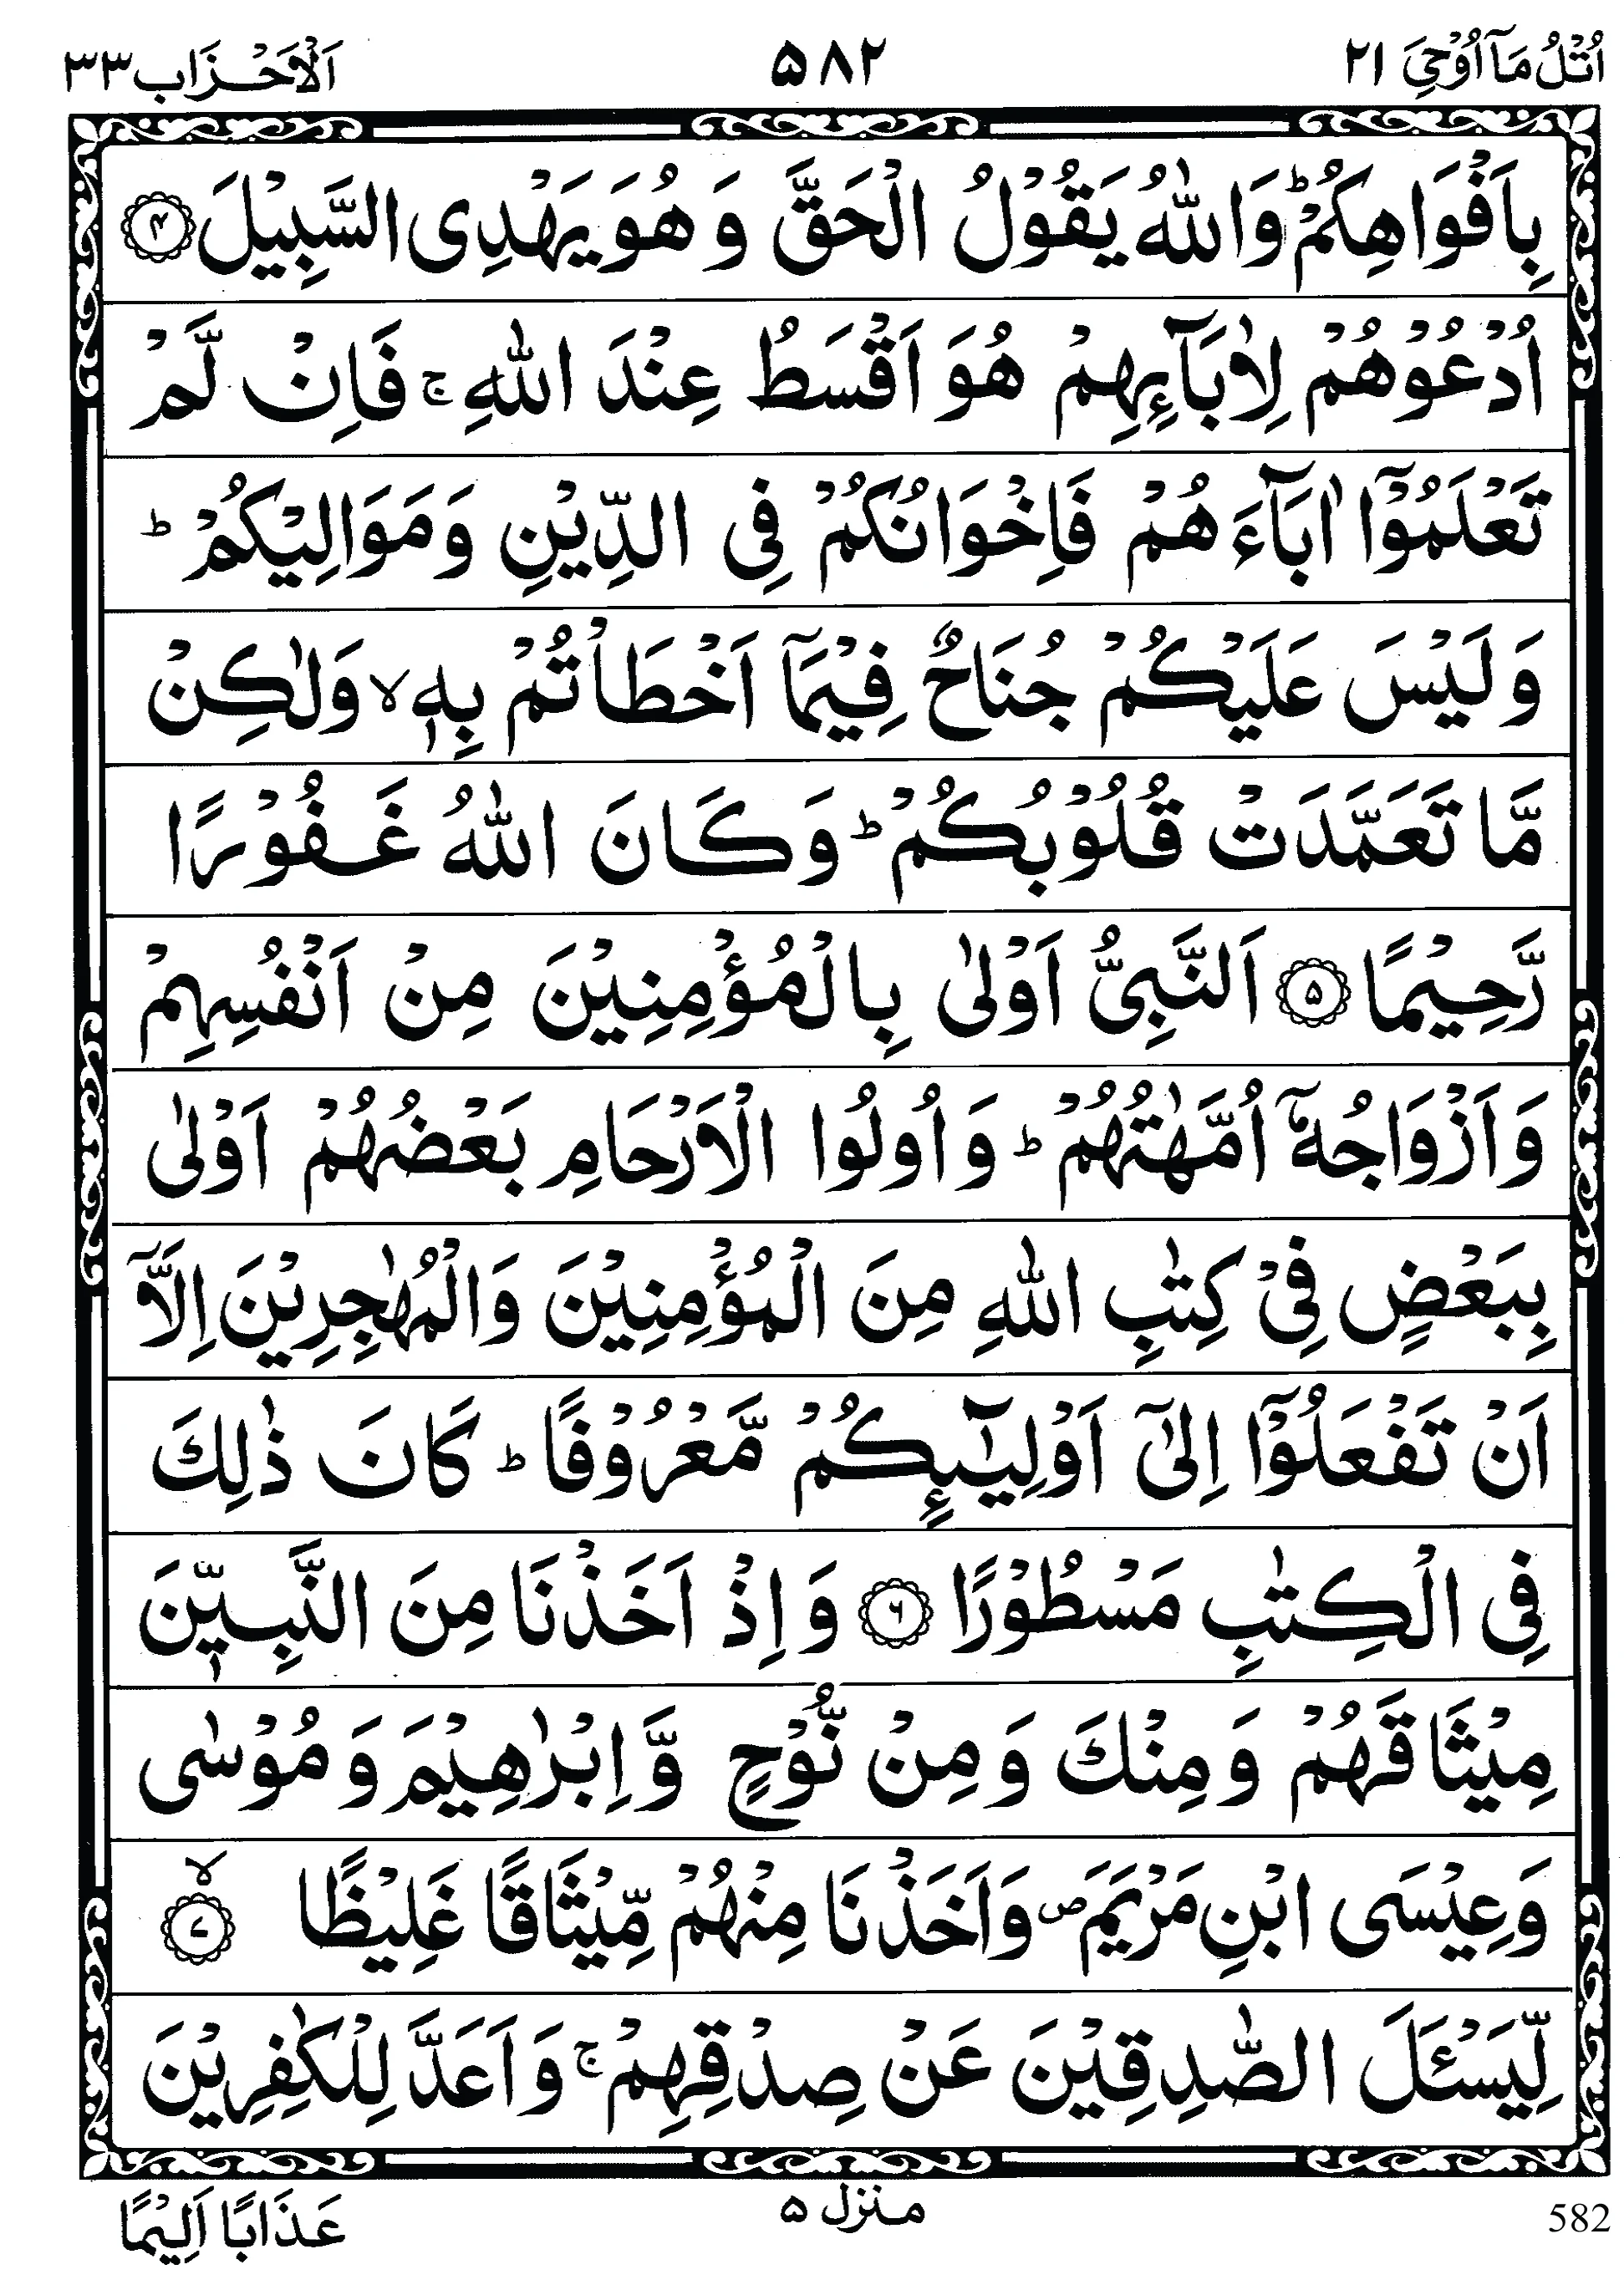 اُتْلُ مَاۤ اُوْحِیَ ۲۱
۵۸۲
اَلْاَحْزَاب ۳۳
بِاَفْوَاهِكُمْ ؕ وَاللّٰهُ يَقُوْلُ الْحَقَّ وَهُوَ يَهْدِى السَّبِيْلَ ﴿۴﴾
اُدْعُوْهُمْ لِاٰبَآٮِٕهِمْ هُوَ اَقْسَطُ عِنْدَ اللّٰهِ ۚ فَاِنْ لَّمْ
تَعْلَمُوْۤا اٰبَآءَهُمْ فَاِخْوَانُكُمْ فِى الدِّيْنِ وَمَوَالِيْكُمْ ؕ
وَلَيْسَ عَلَيْكُمْ جُنَاحٌ فِيْمَاۤ اَخْطَاْتُمْ بِهٖ ۙ وَلٰكِنْ
مَّا تَعَمَّدَتْ قُلُوْبُكُمْ ؕ وَكَانَ اللّٰهُ غَفُوْرًا
رَّحِيْمًا ﴿۵﴾ اَلنَّبِىُّ اَوْلٰى بِالْمُؤْمِنِيْنَ مِنْ اَنْفُسِهِمْ
وَاَزْوَاجُهٗۤ اُمَّهٰتُهُمْ ؕ وَاُولُوا الْاَرْحَامِ بَعْضُهُمْ اَوْلٰى
بِبَعْضٍ فِىْ كِتٰبِ اللّٰهِ مِنَ الْمُؤْمِنِيْنَ وَالْمُهٰجِرِيْنَ اِلَّاۤ
اَنْ تَفْعَلُوْۤا اِلٰٓى اَوْلِيٰٓٮِٕكُمْ مَّعْرُوْفًا ؕ كَانَ ذٰلِكَ
فِى الْكِتٰبِ مَسْطُوْرًا ﴿۶﴾ وَاِذْ اَخَذْنَا مِنَ النَّبِيّٖنَ
مِيْثَاقَهُمْ وَمِنْكَ وَمِنْ نُّوْحٍ وَّاِبْرٰهِيْمَ وَمُوْسٰى
وَعِيْسَى ابْنِ مَرْيَمَ ۖ وَاَخَذْنَا مِنْهُمْ مِّيْثَاقًا غَلِيْظًا ۙ﴿۷﴾
لِّيَسْئَلَ الصّٰدِقِيْنَ عَنْ صِدْقِهِمْ ۚ وَاَعَدَّ لِلْكٰفِرِيْنَ
عَذَابًا اَلِيْمًا
منزل ۵
582